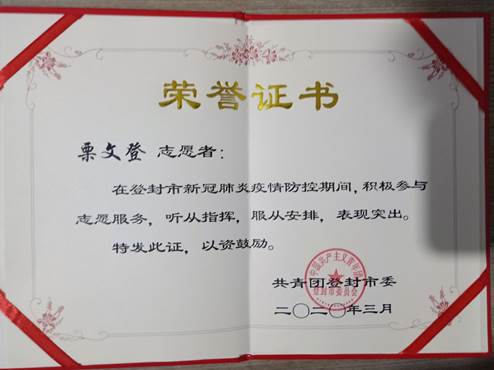 荣誉证书
栗文登 志愿者：
在登封市新冠肺炎疫情防控期间，积极参与
志愿服务，听从指挥，服从安排，表现突出。
特发此证，以资鼓励。
中国共产主义青年团
登封市委员会
共青团登封市委
二〇二〇年三月